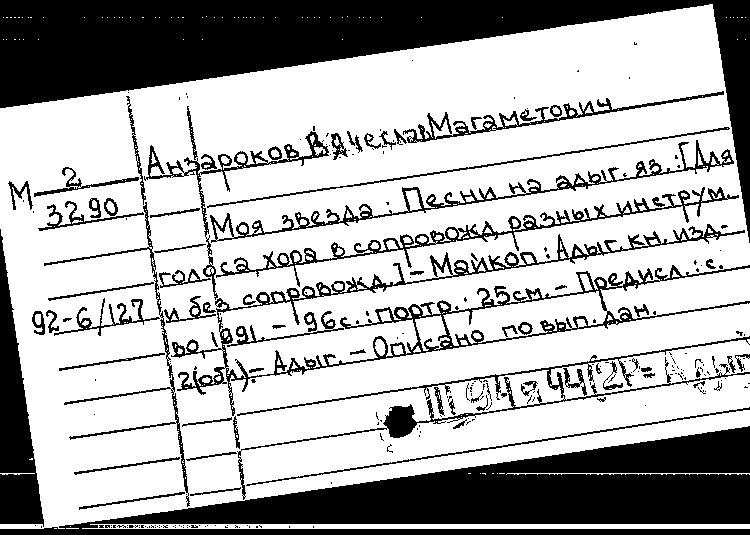 М 2
3290
92-6/127
Анзароков, Вячеслав Магаметович
Моя звезда : Песни на адыг. яз. : [Для
голоса, хора в сопровожд. разных инструм.
и без сопровожд.] - Майкоп : Адыг. кн. изд-
во, 1991. - 96 с. : портр. ; 25 см. - Предисл. : с.
2 (обл). - Адыг. - Описано по вып. дан.
III 94 я 44 (2Р = Адыг